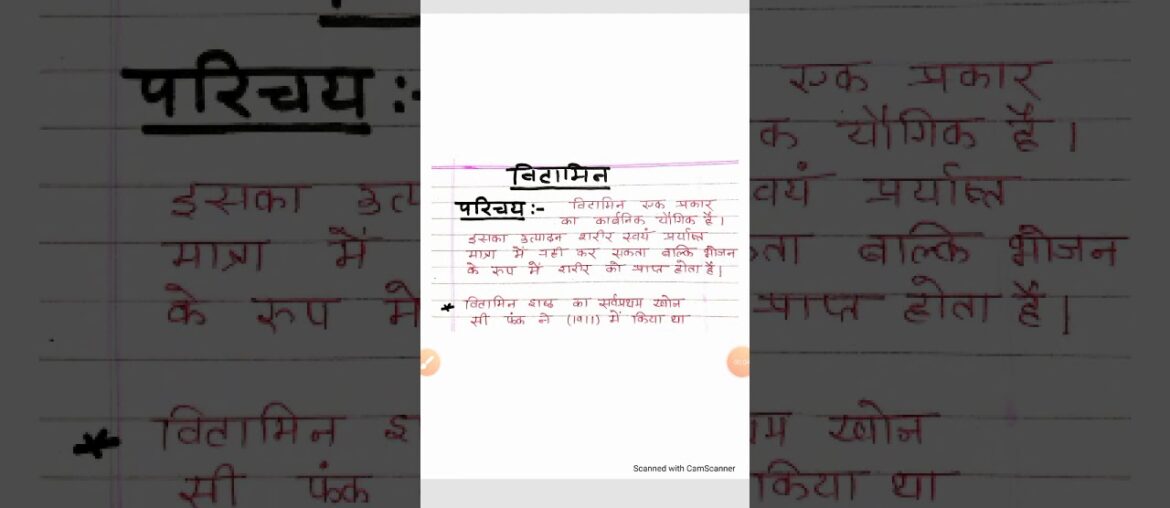 विटामिन
परिचय :- विटामिन एक प्रकार
का कार्बनिक यौगिक है।
इसका उत्पादन शरीर स्वयं प्रर्याप्त
मात्रा में नही कर सकता बाल्कि भोजन
के रुप में शरीर को प्राप्त होता है।
* विटामिन शब्द का सर्वप्रथम खोज
सी फंक ने (1911) में किया था
Scanned with CamScanner